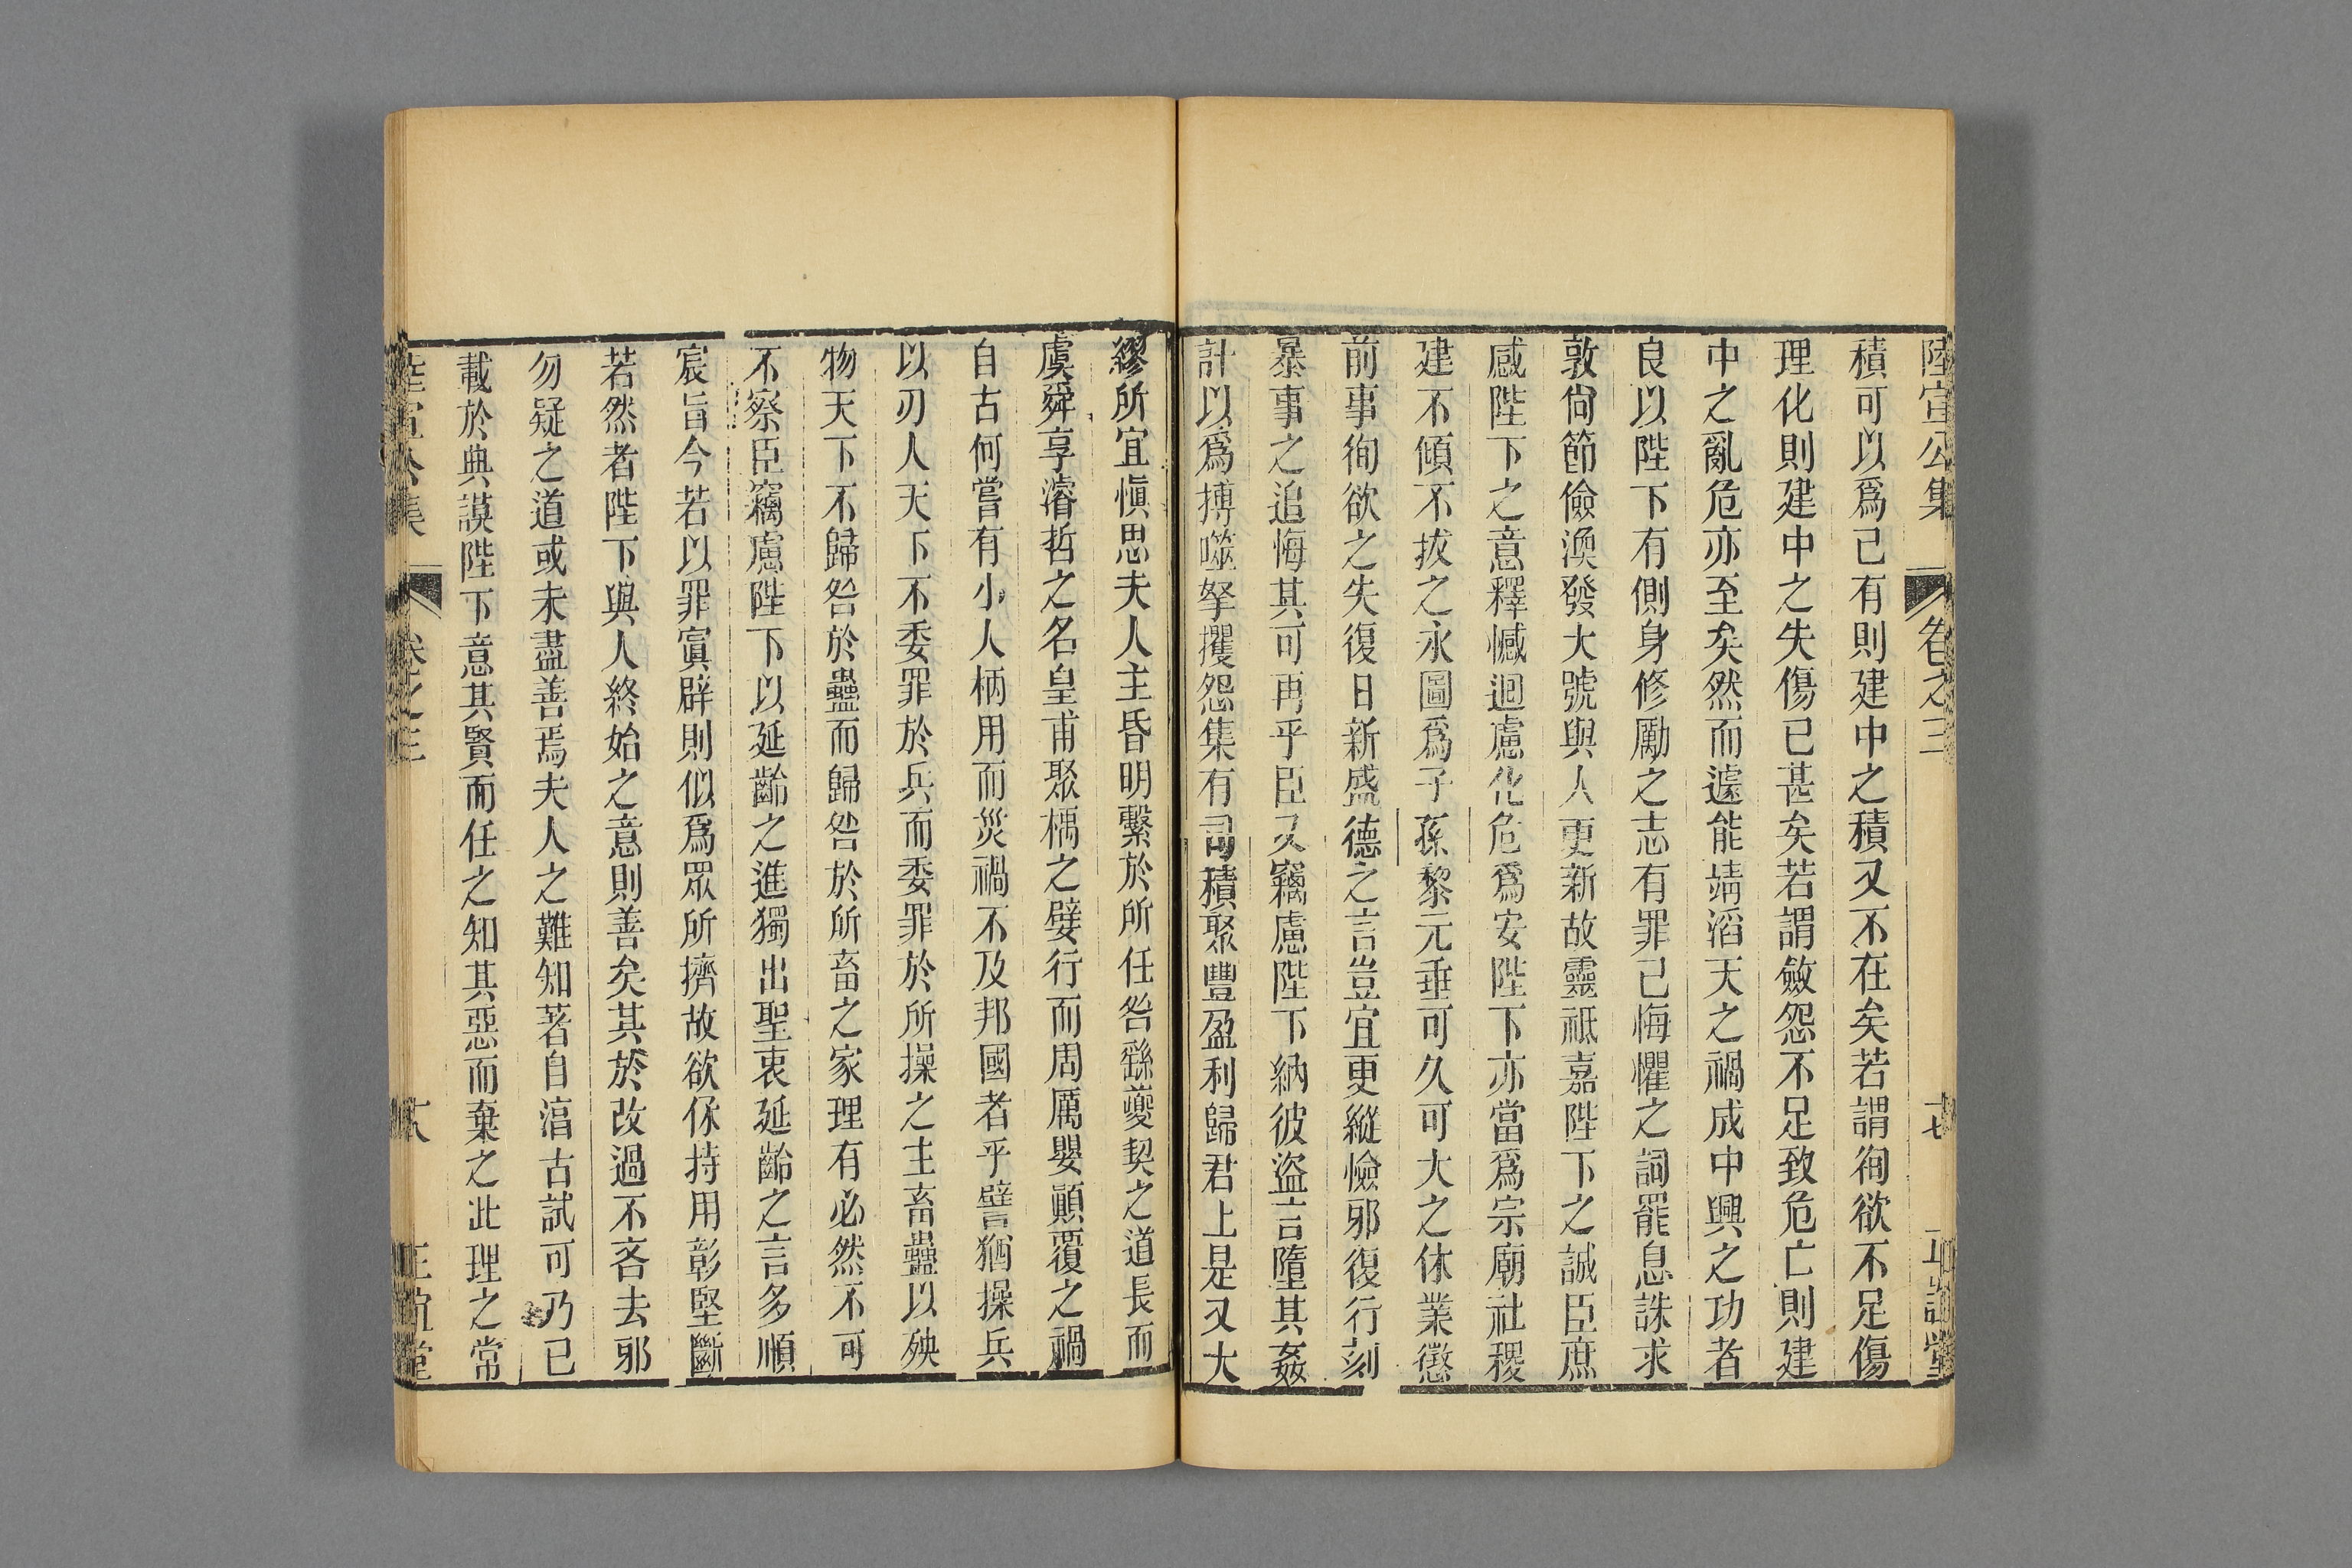 陸宣公集 卷之三 十七 正誼堂
積可以爲己有則建中之積又不在矣若謂徇欲不足傷
理化則建中之失傷已甚矣若謂斂怨不足致危亡則建
中之亂危亦至矣然而遽能靖滔天之禍成中興之功者
良以陛下有側身修勵之志有罪己悔懼之詞罷息誅求
敦尙節儉渙發大號與人更新故靈祗嘉陛下之誠臣庶
感陛下之意釋憾迴慮化危爲安陛下亦當爲宗廟社稷
建不傾不拔之永圖爲子孫黎元垂可久可大之休業懲
前事徇欲之失復日新盛德之言豈宜更縱憸邪復行刻
暴事之追悔其可再乎臣又竊慮陛下納彼盜言墮其姦
計以爲搏噬拏攫怨集有司積聚豐盈利歸君上是又大
繆所宜愼思夫人主昏明繫於所任咎繇夔契之道長而
虞舜享濬哲之名皇甫聚楀之嬖行而周厲嬰顚覆之禍
自古何嘗有小人柄用而災禍不及邦國者乎譬猶操兵
以刃人天下不委罪於兵而委罪於所操之主畜蠱以殃
物天下不歸咎於蠱而歸咎於所畜之家理有必然不可
不察臣竊慮陛下以延齡之進獨出聖衷延齡之言多順
宸旨今若以罪寘辟則似爲眾所擠故欲保持用彰堅斷
若然者陛下與人終始之意則善矣其於改過不吝去邪
勿疑之道或未盡善焉夫人之難知著自淊古試可乃已
載於典謨陛下意其賢而任之知其惡而棄之此理之常
陸宣公集 卷之三 十八 正誼堂